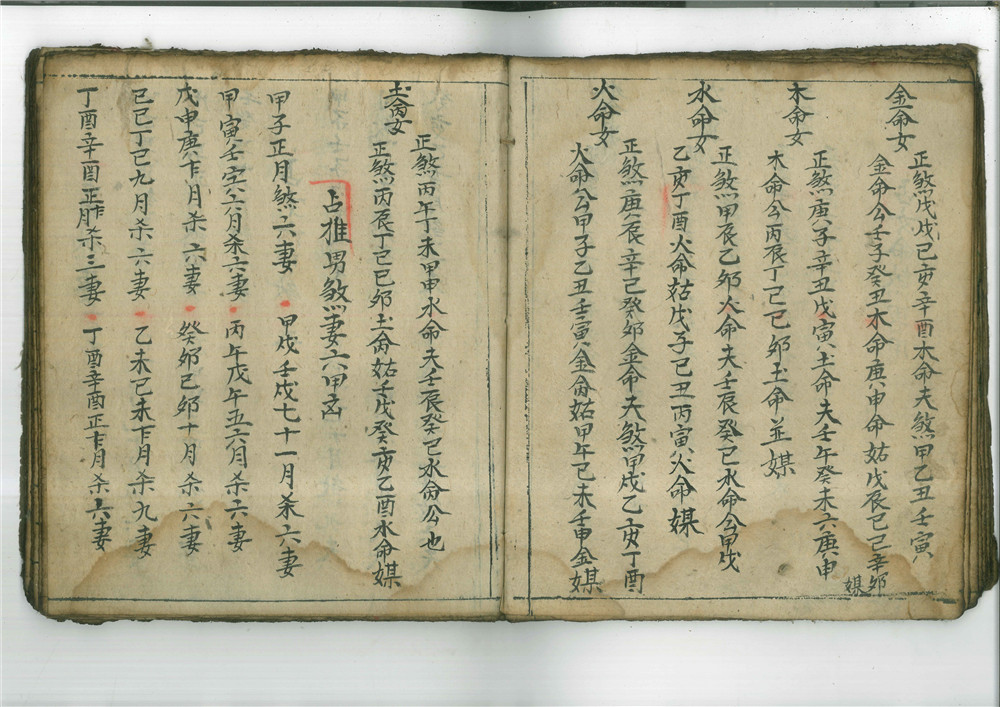 金命女
正煞戊戌己亥辛酉木命夫煞甲乙丑壬寅
金命公壬子癸丑木命庚申命姑戊辰己巳辛卯媒
木命女
正煞庚子辛丑戊寅土命夫壬午癸未六庚申
木命公丙辰丁巳己卯土命並媒
水命女
正煞甲辰乙卯火命夫壬辰癸巳水命公甲戌
乙亥丁酉火命姑戊子己丑丙寅火命媒
火命女
正煞庚辰辛巳癸卯金命夫煞甲戌乙亥丁酉
火命公甲子乙丑壬寅金命姑甲午己未壬申金媒
土命女
正煞丙午丁未甲申水命夫壬辰癸巳水命公也
正煞丙辰丁巳己卯土命姑壬戌癸亥乙酉水命媒
占推男煞妻六甲凶
甲子正月煞六妻 甲戌壬戌七十一月杀六妻
甲寅壬六月杀六妻 丙午戊午五六月杀六妻
戊申庚月杀六妻 癸卯己卯十月杀六妻
己巳丁巳九月杀六妻 乙未己未月杀九妻
丁酉辛酉正月杀三妻 丁酉辛酉正月杀六妻